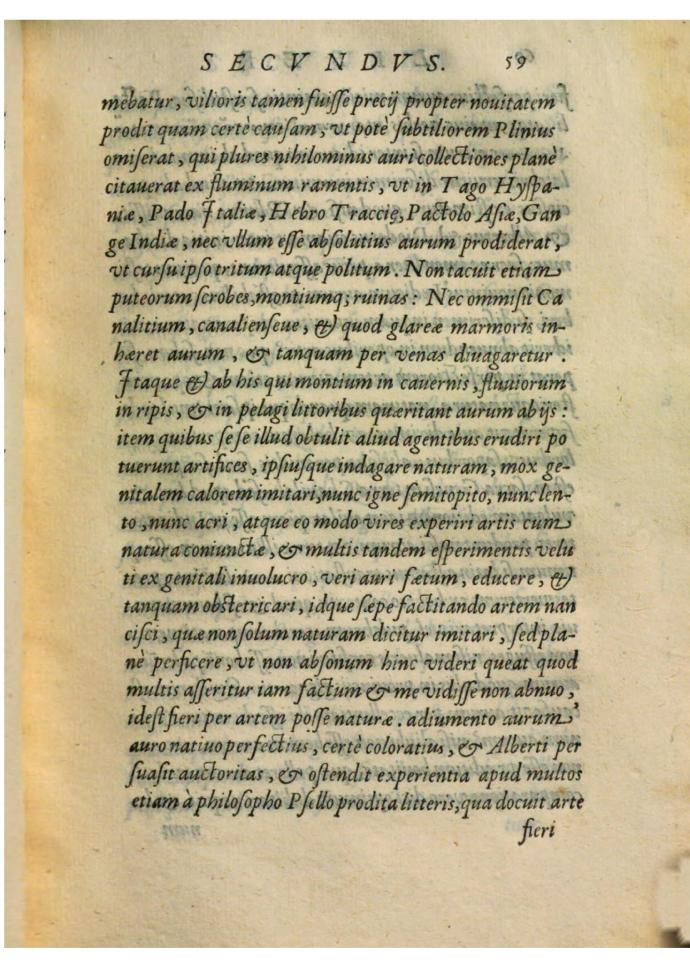 SECVNDVS. 59
mebatur, vilioris tamen fuiſſe precij propter nouitatem
prodit quam certè cauſam, vt potè ſubtiliorem Plinius
omiſerat, qui plures nihilominus auri collectiones planè
citauerat ex fluminum ramentis, vt in Tago Hyſpa-
niæ, Pado Italiæ, Hebro Traccię, Pactolo Aſiæ, Gan
ge Indiæ, nec vllum eſſe abſolutius aurum prodiderat,
vt curſu ipſo tritum atque politum. Non tacuit etiam
puteorum ſcrobes, montiumq; ruinas: Nec ommiſit Ca
nalitium, canalienſeue, & quod glareæ marmoris in-
hæret aurum, & tanquam per venas diuagaretur.
Itaque & ab his qui montium in cauernis, fluuiorum
in ripis, & in pelagi littoribus quæritant aurum ab ijs:
item quibus ſe ſe illud obtulit aliud agentibus erudiri po
tuerunt artifices, ipſiuſque indagare naturam, mox ge-
nitalem calorem imitari, nunc igne ſemitopito, nunc len-
to, nunc acri, atque eo modo vires experiri artis cum
natura coniunctæ, & multis tandem eſperimentis velu
ti ex genitali inuolucro, veri auri fætum, educere, &
tanquam obstetricari, idque ſæpe factitando artem nan
ciſci, quæ non ſolum naturam dicitur imitari, ſed pla-
nè perficere, vt non abſonum hinc videri queat quod
multis aſſeritur iam factum & me vidiſſe non abnuo,
ideſt fieri per artem poſſe naturæ. adiumento aurum
auro natiuo perfectius, certè coloratius, & Alberti per
ſuaſit auctoritas, & oſtendit experientia apud multos
etiam à philoſopho Pſello prodita litteris, qua docuit arte
fieri